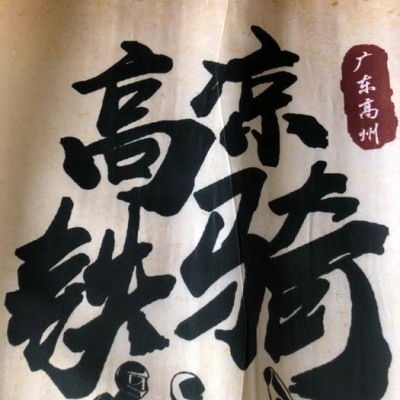 高凉
铁骑
广东高州